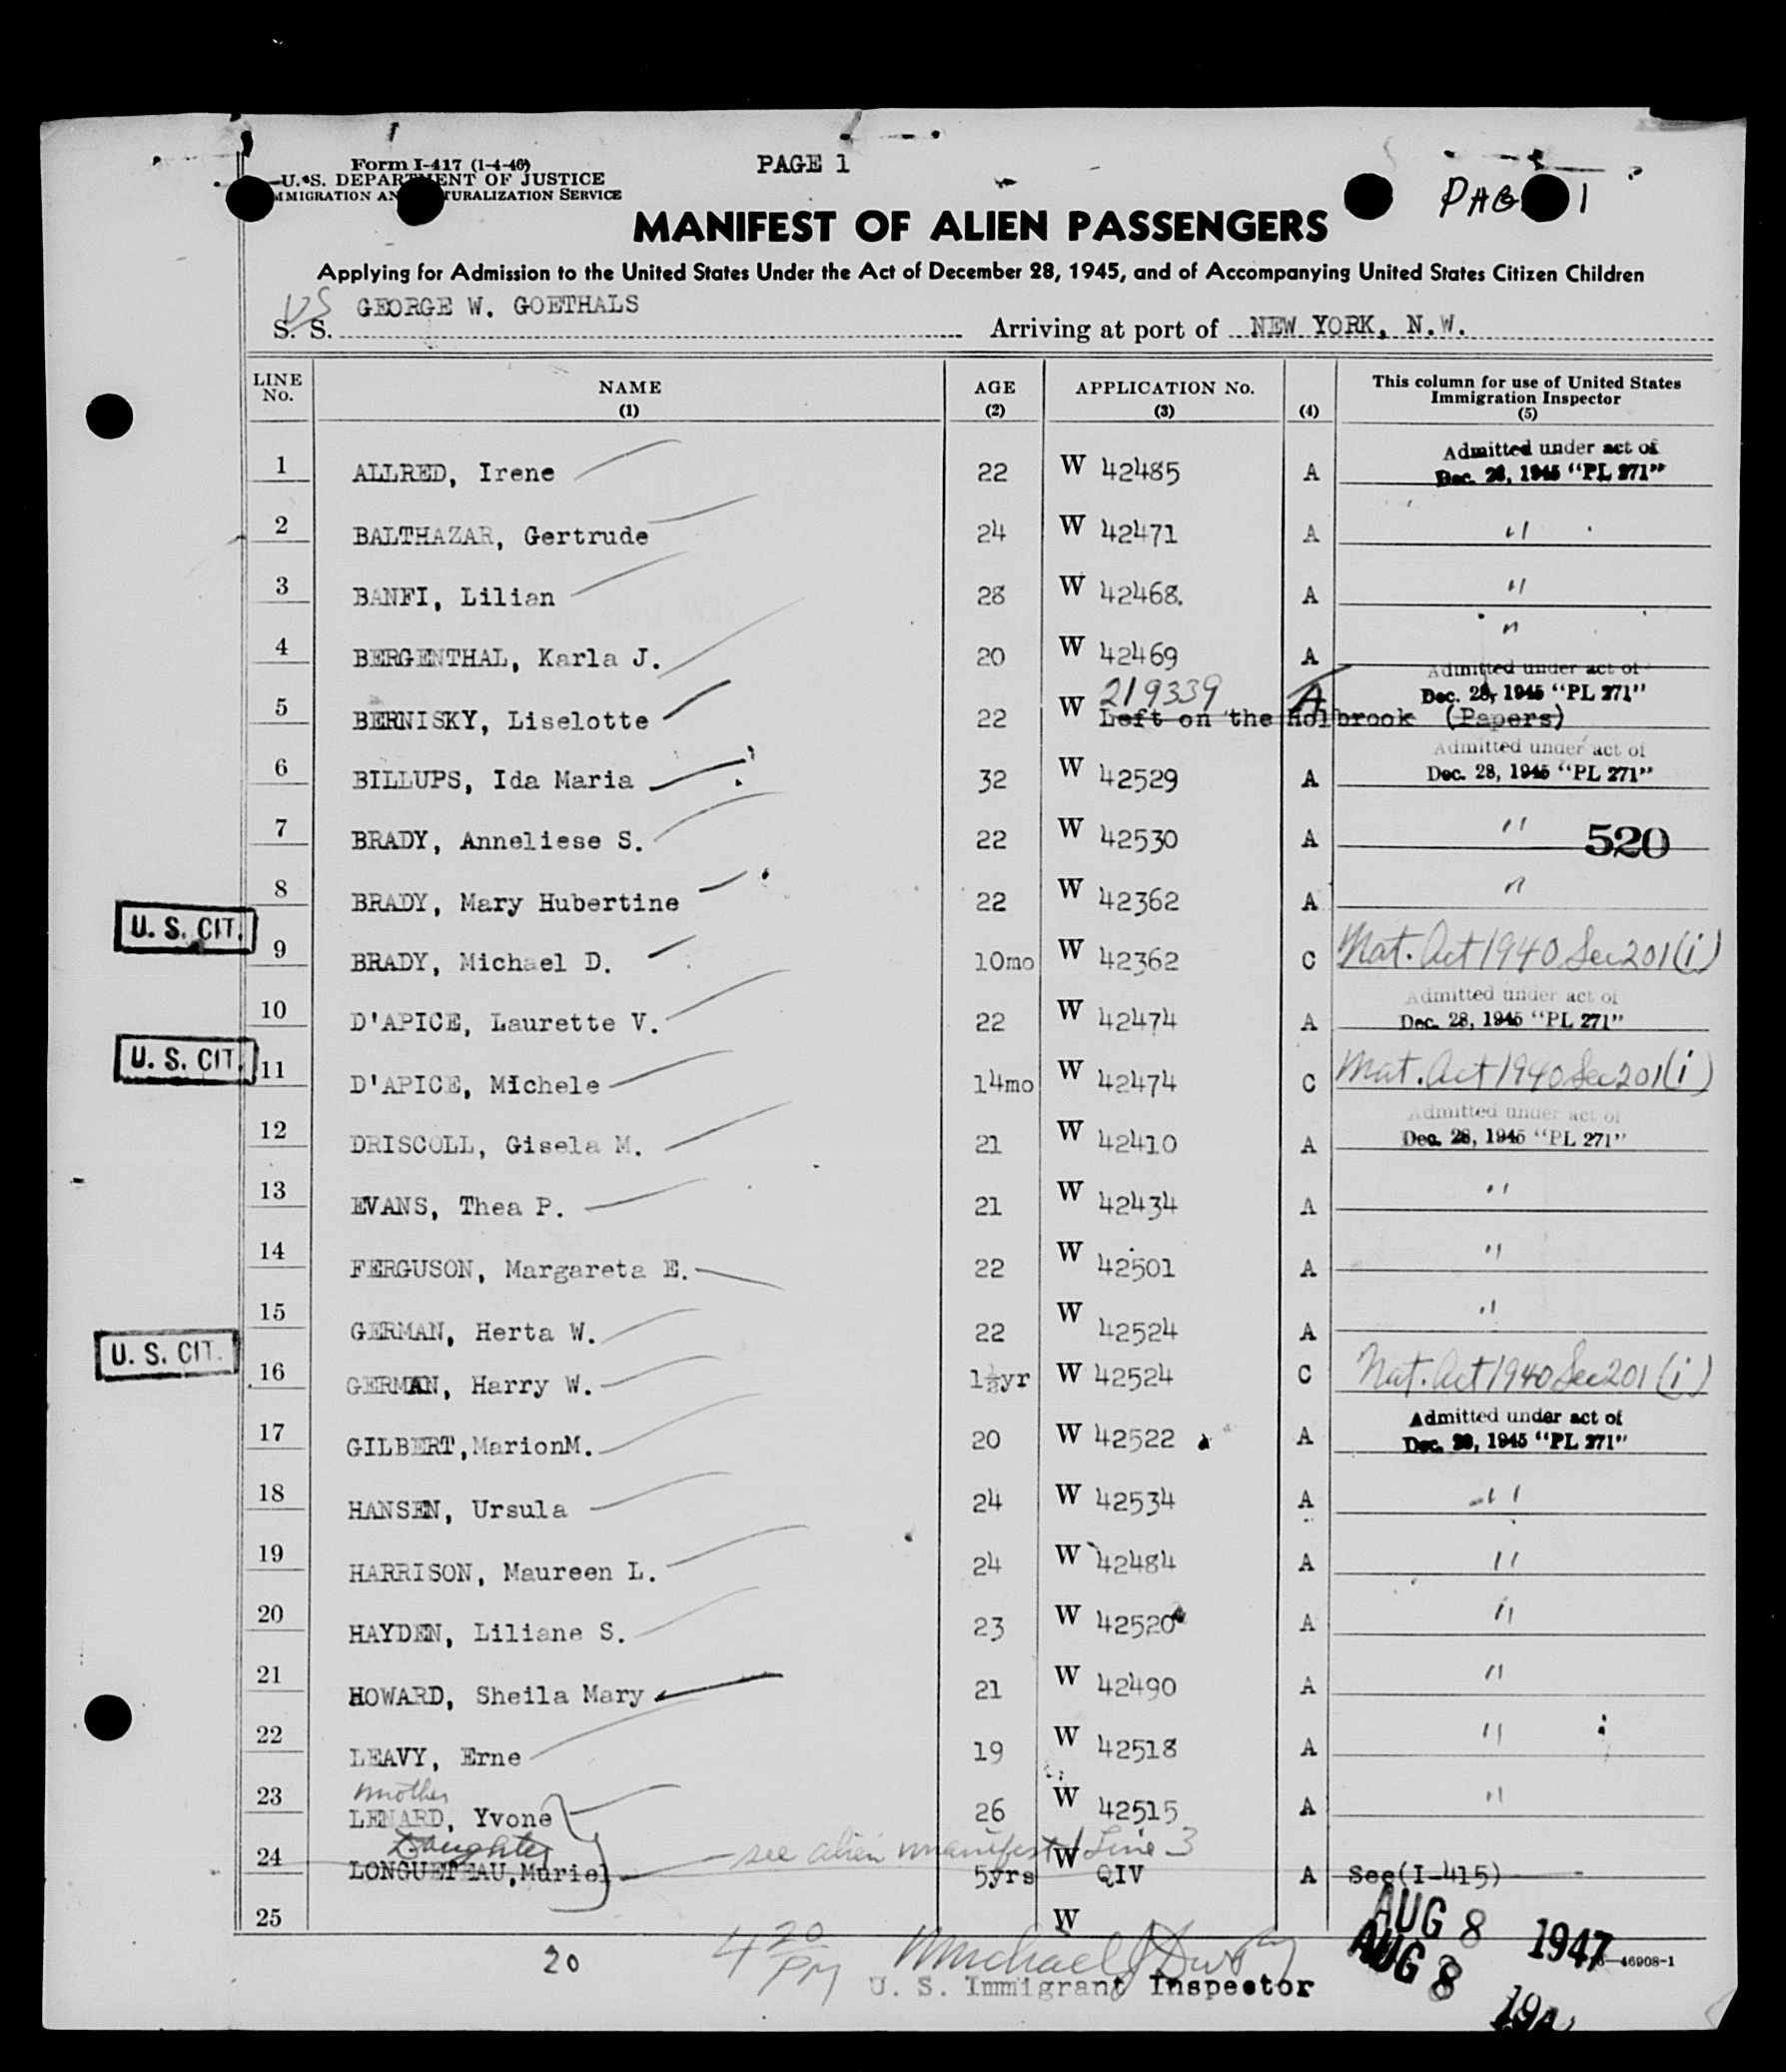 Form I-417 (1-4-46)
U. S. DEPARTMENT OF JUSTICE
IMMIGRATION AND NATURALIZATION SERVICE
PAGE 1
PAGE 1
MANIFEST OF ALIEN PASSENGERS
Applying for Admission to the United States Under the Act of December 28, 1945, and of Accompanying United States Citizen Children
US
S. S. GEORGE W. GOETHALS Arriving at port of NEW YORK, N.W.
LINE No. NAME (1) AGE (2) APPLICATION No. (3) (4) This column for use of United States Immigration Inspector (5)
1 ALLRED, Irene 22 W 42485 A Admitted under act of Dec. 28, 1945 "PL 271"
2 BALTHAZAR, Gertrude 24 W 42471 A "
3 BANFI, Lilian 28 W 42468. A "
4 BERGENTHAL, Karla J. 20 W 42469 A "
5 BERNISKY, Liselotte 22 W 219339 Left on the Holbrook (Papers) A Admitted under act of Dec. 28, 1945 "PL 271"
6 BILLUPS, Ida Maria 32 W 42529 A Admitted under act of Dec. 28, 1945 "PL 271"
7 BRADY, Anneliese S. 22 W 42530 A " 520
8 BRADY, Mary Hubertine 22 W 42362 A "
U. S. CIT. 9 BRADY, Michael D. 10mo W 42362 C Nat. Act 1940 Sec 201(i)
10 D'APICE, Laurette V. 22 W 42474 A Admitted under act of Dec. 28, 1945 "PL 271"
U. S. CIT. 11 D'APICE, Michele 14mo W 42474 C Nat. Act 1940 Sec 201(i)
12 DRISCOLL, Gisela M. 21 W 42410 A Admitted under act of Dec. 28, 1945 "PL 271"
13 EVANS, Thea P. 21 W 42434 A "
14 FERGUSON, Margareta E. 22 W 42501 A "
15 GERMAN, Herta W. 22 W 42524 A "
U. S. CIT. 16 GERMAN, Harry W. 1½yr W 42524 C Nat. Act 1940 Sec 201(i)
17 GILBERT,MarionM. 20 W 42522 A Admitted under act of Dec. 28, 1945 "PL 271"
18 HANSEN, Ursula 24 W 42534 A "
19 HARRISON, Maureen L. 24 W 42484 A "
20 HAYDEN, Liliane S. 23 W 42520 A "
21 HOWARD, Sheila Mary 21 W 42490 A "
22 LEAVY, Erne 19 W 42518 A "
mother
23 LENARD, Yvone 26 W 42515 A "
Daughter see alien manifest Line 3
24 LONGUETEAU,Muriel 5yrs W QIV A See(I-415)
25 W
AUG 8 1947
AUG 8 194
20 4 20 PM Michael
U. S. Immigrant Inspector
46908-1